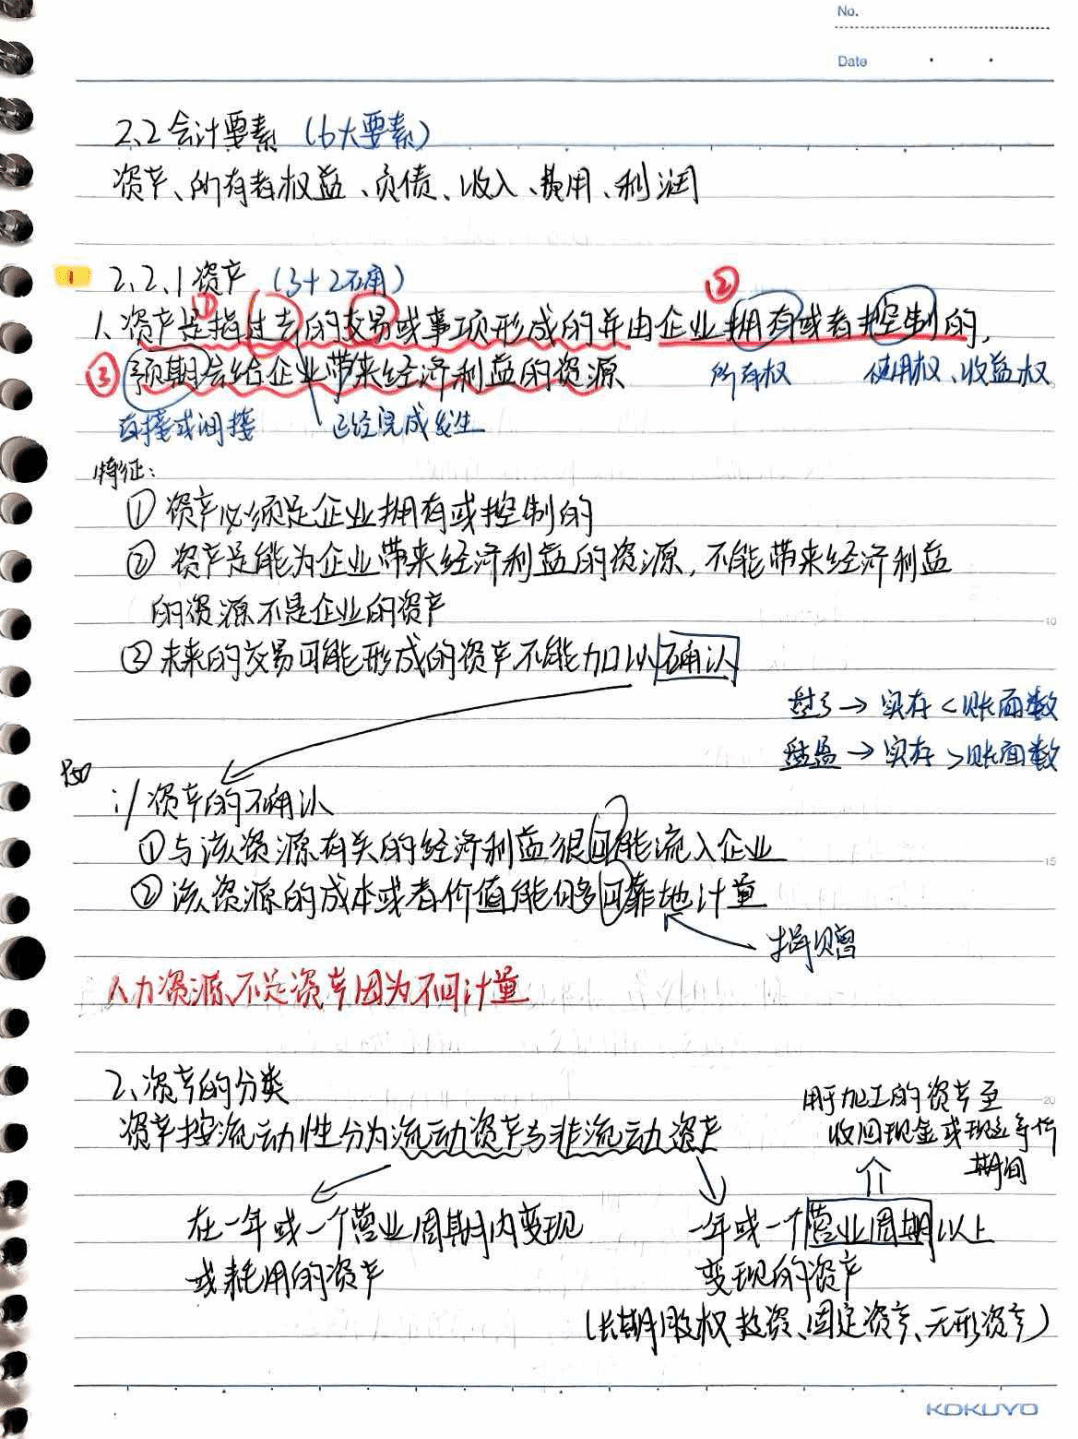 No.
Date
2.2 会计要素 (6大要素)
资产、所有者权益、负债、收入、费用、利润
1
2.2.1 资产 (3+2确)
① ②
1.资产是指过去的交易或事项形成的并由企业拥有或者控制的,
③ 预期会给企业带来经济利益的资源 所有权 使用权、收益权
直接或间接 已经完成发生
特征:
① 资产必须是企业拥有或控制的
② 资产是能为企业带来经济利益的资源,不能带来经济利益
的资源不是企业的资产
③ 未来的交易可能形成的资产不能加以确认
盘亏→实存<账面数
盘盈→实存>账面数
P50
资产的确认
①与该资源有关的经济利益很可能流入企业
②该资源的成本或者价值能够可靠地计量
捐赠
人力资源、不是资产因为不可计量
2、资产的分类
资产按流动性分为流动资产与非流动资产
用于加工的资产至
收回现金或现金等价
期间
在一年或一个营业周期内变现
或耗用的资产
一年或一个营业周期以上
变现的资产
(长期股权投资、固定资产、无形资产)
5
10
15
20
KOKUYO